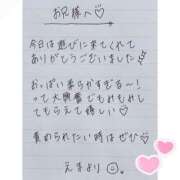 お兄様へ♡
今日は遊びに来てくれて
ありがとうございました
おっぱい柔らかすぎる〜!
って大興奮でもみもみし
てもらえて嬉しい♡
責められたい時はぜひ♡
えまより☺